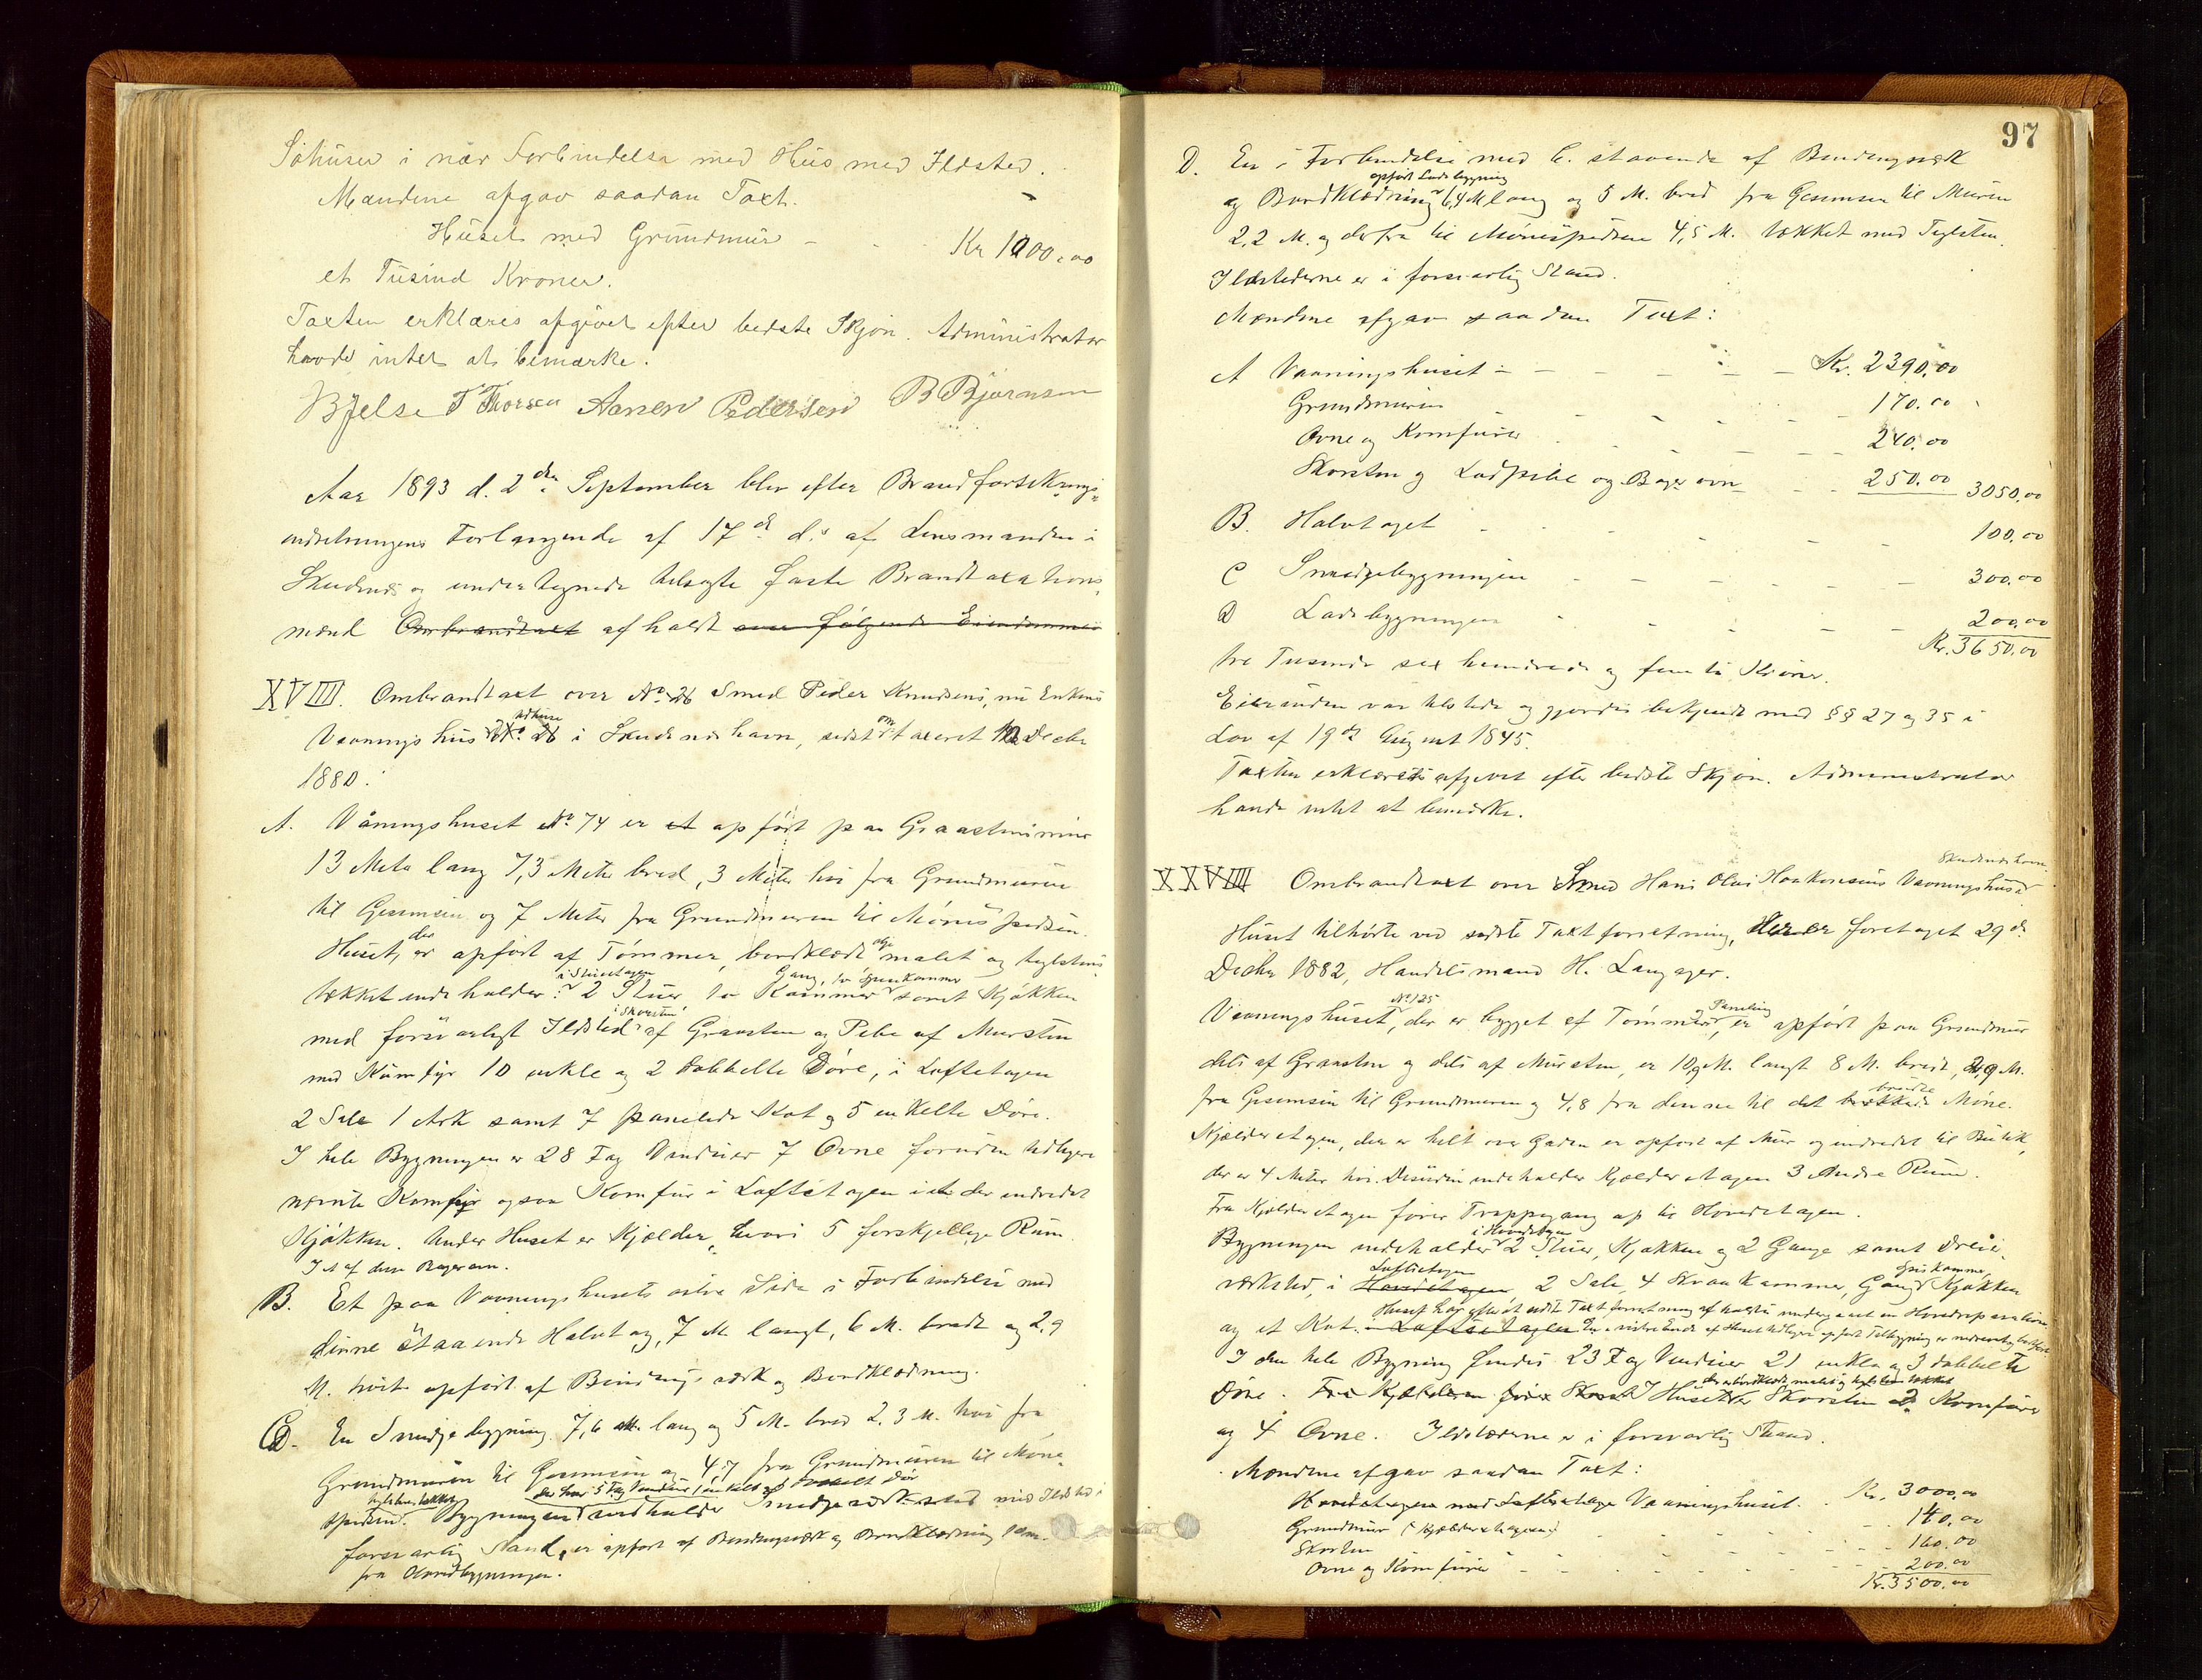 Söhuser i nær Forbindelse med Hus med Ildsted.
Mændene afgav saadan Taxt.
Huset med Grundmur - Kr 1000.00
et Tusind Kroner.
Taxten erklæres afgivet efter bedste Skjøn. Administrator
havde intet at bemærke.
T Thorsen Aanen Pedersen B Bjørnsen
Aar 1893 d. 2den September blev efter Brandforsikrings
indretningens Forlangende af 17de ds af Lensmanden i
Skudenes og undertegnede tilsagte faste Brandtaxations
mænd Ombrandtaxt afholdt over følgende Eiendommer
XVIII. Ombrandtaxt over No 26 Smed Peder Knudsens, nu Enkens
Vaaningshus No 26 i Skudeneshavn, sidst omtaxeret Decbr
1880.
A. Våningshuset No 74 er et opført paa Graastensmur
13 Meter lang 7,3 Meter bred, 3 Meter höi fra Grundmuren
til Gesimsen og 7 Meter fra Grundmuren til Mönespidsen.
Huset, der er opført af Tømmer, bordklædt olje malet og teglstens
tækket indeholder: i Stueetagen 2 Stuer, to Kammer Gang, to Spisekammer samt Kjøkken
med forsvarligt Ildsted i Skorsten af Graasten og Pibe af Mursten
med Kumfyr 10 enkle og 2 dobbelte Döre, i Loftetagen
2 Sale 1 Ark samt 7 panelede Kot og 5 enkelte Döre.
I hele Bygningen er 28 Fag Vinduer 7 Ovne foruden tidligere
nævnte Komfyr ogsaa Komfur i Loftetagen i et der indredet
Kjøkken. Under Huset er Kjælder, hvori 5 forskjellige Rum.
I et af dem Bagerovn.
B. Et paa Vaaningshusets Side i Forbindelse med
denne staaende Halvtag, 7 M langt, 6 M. bredt og 2,9
M. höit opført af Bindingsværk og Bordklædning.
C. En Smidjebygning 7,6 M. lang og 5 M. bred 2.3 M. höi fra
Grundmuren til Gesimsen og 4,7 fra Grundmuren til Möne
der har 5 Fag Vinduer 1 enkelt og 1 dobbelt Dör
spidsen. teglstenstækket Bygningen indholder Smidjeværksted med Ildsted i
forsvarlig Stand, er opført af Bindingsværk og Bordklædning
fra Hovedbygningen.
97
D. En i Forbindelse med C. staaende af Bindingsværk
og Bordklædning opført Ladebygning 6,4 M lang og 5 M. bred fra Gesimsen til Muren
2,2 M. og derfra til Mönespidsen 4,5 M. tækket med Teglsten.
Ildstederne er i forsvarlig Stand.
Mændene afgav saadan Taxt:
A Vaaningshuset - Kr. 2390.00
Grundmuren 170.00
Ovne og Komfurer 240.00
Skorsten og Ladpibe og Bagerovn 250.00 3050.00
B. Halvtaget 100.00
C Smedjebygningen 300.00
D Ladebygningen 200.00
Kr. 3650.00
tre Tusinde sex hundrede og femti Kroner.
Eierinden var tilstede og gjordes bekjendt med §§ 27 og 35 i
Lov af 19de August 1845.
Taxten erklæredes afgivet efter bedste Skjøn. Administrator
havde intet at bemærke.
Skudeneshavn
XXVIIII Ombrandtaxt over Smed Hans Olai Haakonsens Vaaningshus i
Huset tilhörte ved sidste Taxtforretning, foretaget 29de
Decbr 1882, Handelsmand H. Langager.
Vaaningshuset, No 125 der er bygget af Tømmer og Paneling, er opført paa Grundmur
dels af Graasten og dels af Mursten, er 10,9 M. langt 8 M. bredt, M.
fra Gesimsen til Grundmuren og 4,8 fra denne til det brækkede Möne.
Kjælderetagen, der er helt over Gaden er opført af Mur og indredet til Butik,
der er 4 Meter höi. Desuden indeholder Kjælderetagen 3 Andre Rum.
Fra Kjælderetagen förer Trappegang op til Hovedetagen.
Bygningen indeholder i Hovedetagen 2 Stuer, Kjøkken og 2 Gange samt Dreie-
værksted, i Hovedetagen Loftetagen 2 Sale, 4 Skraakammer, Gang Spiskammer Kjøkken
og et Kot. i Loftsetagen Huset har efter at sidste Taxtforretning afholdtes undergaaet en Hovedreparation
I den hele Bygning findes 23 Fag Vinduer 21 enkle og 3 dobbelte
Döre. Fra Kjælderen förer Skorst I Huset er der er bordklædt, malet og teglstentækket Skorsten 2 Komfurer
og 4 Ovne. Ildstederne er i forsvarlig Stand.
Mændene afgav saadan Taxt:
Hovedetagen med Loftsetage Vaaningshuset. Kr. 3000.00
Grundmur (Kjælderetagen) 140.00
Skorsten 160.00
Ovne og Komfurer 200.00
Kr. 3500.00